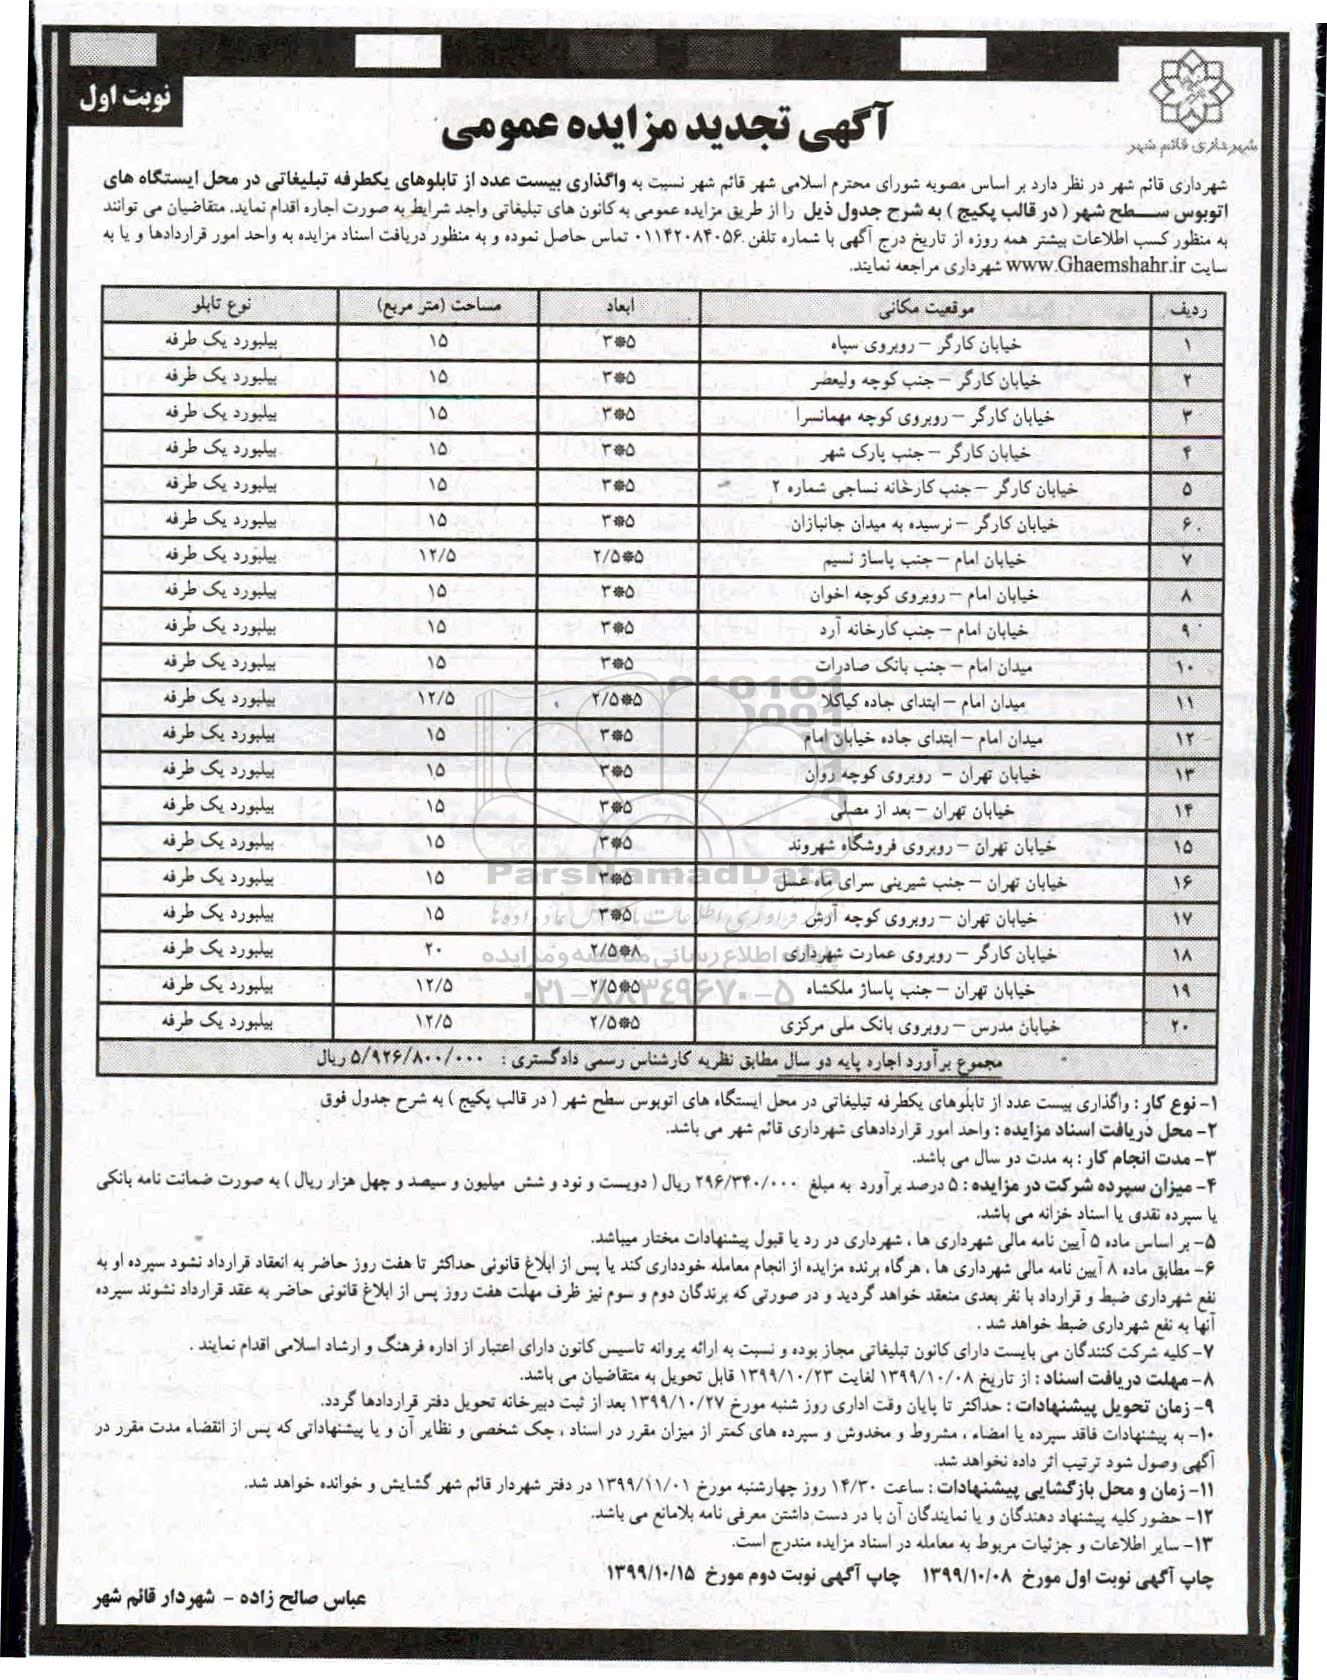 نوبت اول
شهرداری قائم شهر
آگهی تجدید مزایده عمومی
شهرداری قائم شهر در نظر دارد بر اساس مصوبه شورای محترم اسلامی شهر قائم شهر نسبت به واگذاری بیست عدد از تابلوهای یکطرفه تبلیغاتی در محل ایستگاه های
اتوبوس سطح شهر ( در قالب پکیج ) به شرح جدول ذیل را از طریق مزایده عمومی به کانون های تبلیغاتی واجد شرایط به صورت اجاره اقدام نماید. متقاضیان می توانند
به منظور کسب اطلاعات بیشتر همه روزه از تاریخ درج آگهی با شماره تلفن ۰۱۱۴۲۰۸۴۰۵۶ تماس حاصل نموده و به منظور دریافت اسناد مزایده به واحد امور قراردادها و یا به
سایت www.Ghaemshahr.ir شهرداری مراجعه نمایند.
ردیف موقعیت مکانی ابعاد مساحت (متر مربع) نوع تابلو
۱ خیابان کارگر – روبروی سپاه ۵*۳ ۱۵ بیلبورد یک طرفه
۲ خیابان کارگر – جنب کوچه ولیعصر ۵*۳ ۱۵ بیلبورد یک طرفه
۳ خیابان کارگر – روبروی کوچه مهمانسرا ۵*۳ ۱۵ بیلبورد یک طرفه
۴ خیابان کارگر – جنب پارک شهر ۵*۳ ۱۵ بیلبورد یک طرفه
۵ خیابان کارگر – جنب کارخانه نساجی شماره ۲ ۵*۳ ۱۵ بیلبورد یک طرفه
۶ خیابان کارگر – نرسیده به میدان جانبازان ۵*۳ ۱۵ بیلبورد یک طرفه
۷ خیابان امام – جنب پاساژ نسیم ۵*۲/۵ ۱۲/۵ بیلبورد یک طرفه
۸ خیابان امام – روبروی کوچه اخوان ۵*۳ ۱۵ بیلبورد یک طرفه
۹ خیابان امام – جنب کارخانه آرد ۵*۳ ۱۵ بیلبورد یک طرفه
۱۰ میدان امام – جنب بانک صادرات ۵*۳ ۱۵ بیلبورد یک طرفه
۱۱ میدان امام – ابتدای جاده کیاکلا ۵*۲/۵ ۱۲/۵ بیلبورد یک طرفه
۱۲ میدان امام – ابتدای جاده خیابان امام ۵*۳ ۱۵ بیلبورد یک طرفه
۱۳ خیابان تهران – روبروی کوچه روان ۵*۳ ۱۵ بیلبورد یک طرفه
۱۴ خیابان تهران – بعد از مصلی ۵*۳ ۱۵ بیلبورد یک طرفه
۱۵ خیابان تهران – روبروی فروشگاه شهروند ۵*۳ ۱۵ بیلبورد یک طرفه
۱۶ خیابان تهران – جنب شیرینی سرای ماه عسل ۵*۳ ۱۵ بیلبورد یک طرفه
۱۷ خیابان تهران – روبروی کوچه آرش ۵*۳ ۱۵ بیلبورد یک طرفه
۱۸ خیابان کارگر – روبروی عمارت شهرداری ۸*۲/۵ ۲۰ بیلبورد یک طرفه
۱۹ خیابان تهران – جنب پاساژ ملکشاه ۵*۲/۵ ۱۲/۵ بیلبورد یک طرفه
۲۰ خیابان مدرس – روبروی بانک ملی مرکزی ۵*۲/۵ ۱۲/۵ بیلبورد یک طرفه
مجموع برآورد اجاره پایه دو سال مطابق نظریه کارشناس رسمی دادگستری : ۵/۹۲۶/۸۰۰/۰۰۰ ریال
ParsNamadData
پایگاه اطلاع رسانی مناقصه و مزایده
۰۲۱-۸۸۳۴۹۶۷۰-۵
۱- نوع کار : واگذاری بیست عدد از تابلوهای یکطرفه تبلیغاتی در محل ایستگاه های اتوبوس سطح شهر ( در قالب پکیج ) به شرح جدول فوق
۲- محل دریافت اسناد مزایده : واحد امور قراردادهای شهرداری قائم شهر می باشد.
۳- مدت انجام کار : به مدت دو سال می باشد.
۴- میزان سپرده شرکت در مزایده : ۵ درصد برآورد به مبلغ ۲۹۶/۳۴۰/۰۰۰ ریال ( دویست و نود و شش میلیون و سیصد و چهل هزار ریال ) به صورت ضمانت نامه بانکی
یا سپرده نقدی یا اسناد خزانه می باشد.
۵- بر اساس ماده ۵ آیین نامه مالی شهرداری ها ، شهرداری در رد یا قبول پیشنهادات مختار میباشد.
۶- مطابق ماده ۸ آیین نامه مالی شهرداری ها ، هرگاه برنده مزایده از انجام معامله خودداری کند یا پس از ابلاغ قانونی حداکثر تا هفت روز حاضر به انعقاد قرارداد نشود سپرده او به
نفع شهرداری ضبط و قرارداد با نفر بعدی منعقد خواهد گردید و در صورتی که برندگان دوم و سوم نیز ظرف مهلت هفت روز پس از ابلاغ قانونی حاضر به عقد قرارداد نشوند سپرده
آنها به نفع شهرداری ضبط خواهد شد .
۷- کلیه شرکت کنندگان می بایست دارای کانون تبلیغاتی مجاز بوده و نسبت به ارائه پروانه تاسیس کانون دارای اعتبار از اداره فرهنگ و ارشاد اسلامی اقدام نمایند .
۸- مهلت دریافت اسناد : از تاریخ ۱۳۹۹/۱۰/۰۸ لغایت ۱۳۹۹/۱۰/۲۳ قابل تحویل به متقاضیان می باشد.
۹- زمان تحویل پیشنهادات : حداکثر تا پایان وقت اداری روز شنبه مورخ ۱۳۹۹/۱۰/۲۷ بعد از ثبت دبیرخانه تحویل دفتر قراردادها گردد.
۱۰- به پیشنهادات فاقد سپرده یا امضاء ، مشروط و مخدوش و سپرده های کمتر از میزان مقرر در اسناد ، چک شخصی و نظایر آن و یا پیشنهاداتی که پس از انقضاء مدت مقرر در
آگهی وصول شود ترتیب اثر داده نخواهد شد.
۱۱- زمان و محل بازگشایی پیشنهادات : ساعت ۱۴/۳۰ روز چهارشنبه مورخ ۱۳۹۹/۱۱/۰۱ در دفتر شهردار قائم شهر گشایش و خوانده خواهد شد.
۱۲- حضور کلیه پیشنهاد دهندگان و یا نمایندگان آن با در دست داشتن معرفی نامه بلامانع می باشد.
۱۳- سایر اطلاعات و جزئیات مربوط به معامله در اسناد مزایده مندرج است.
چاپ آگهی نوبت اول مورخ ۱۳۹۹/۱۰/۰۸ چاپ آگهی نوبت دوم مورخ ۱۳۹۹/۱۰/۱۵
عباس صالح زاده - شهردار قائم شهر